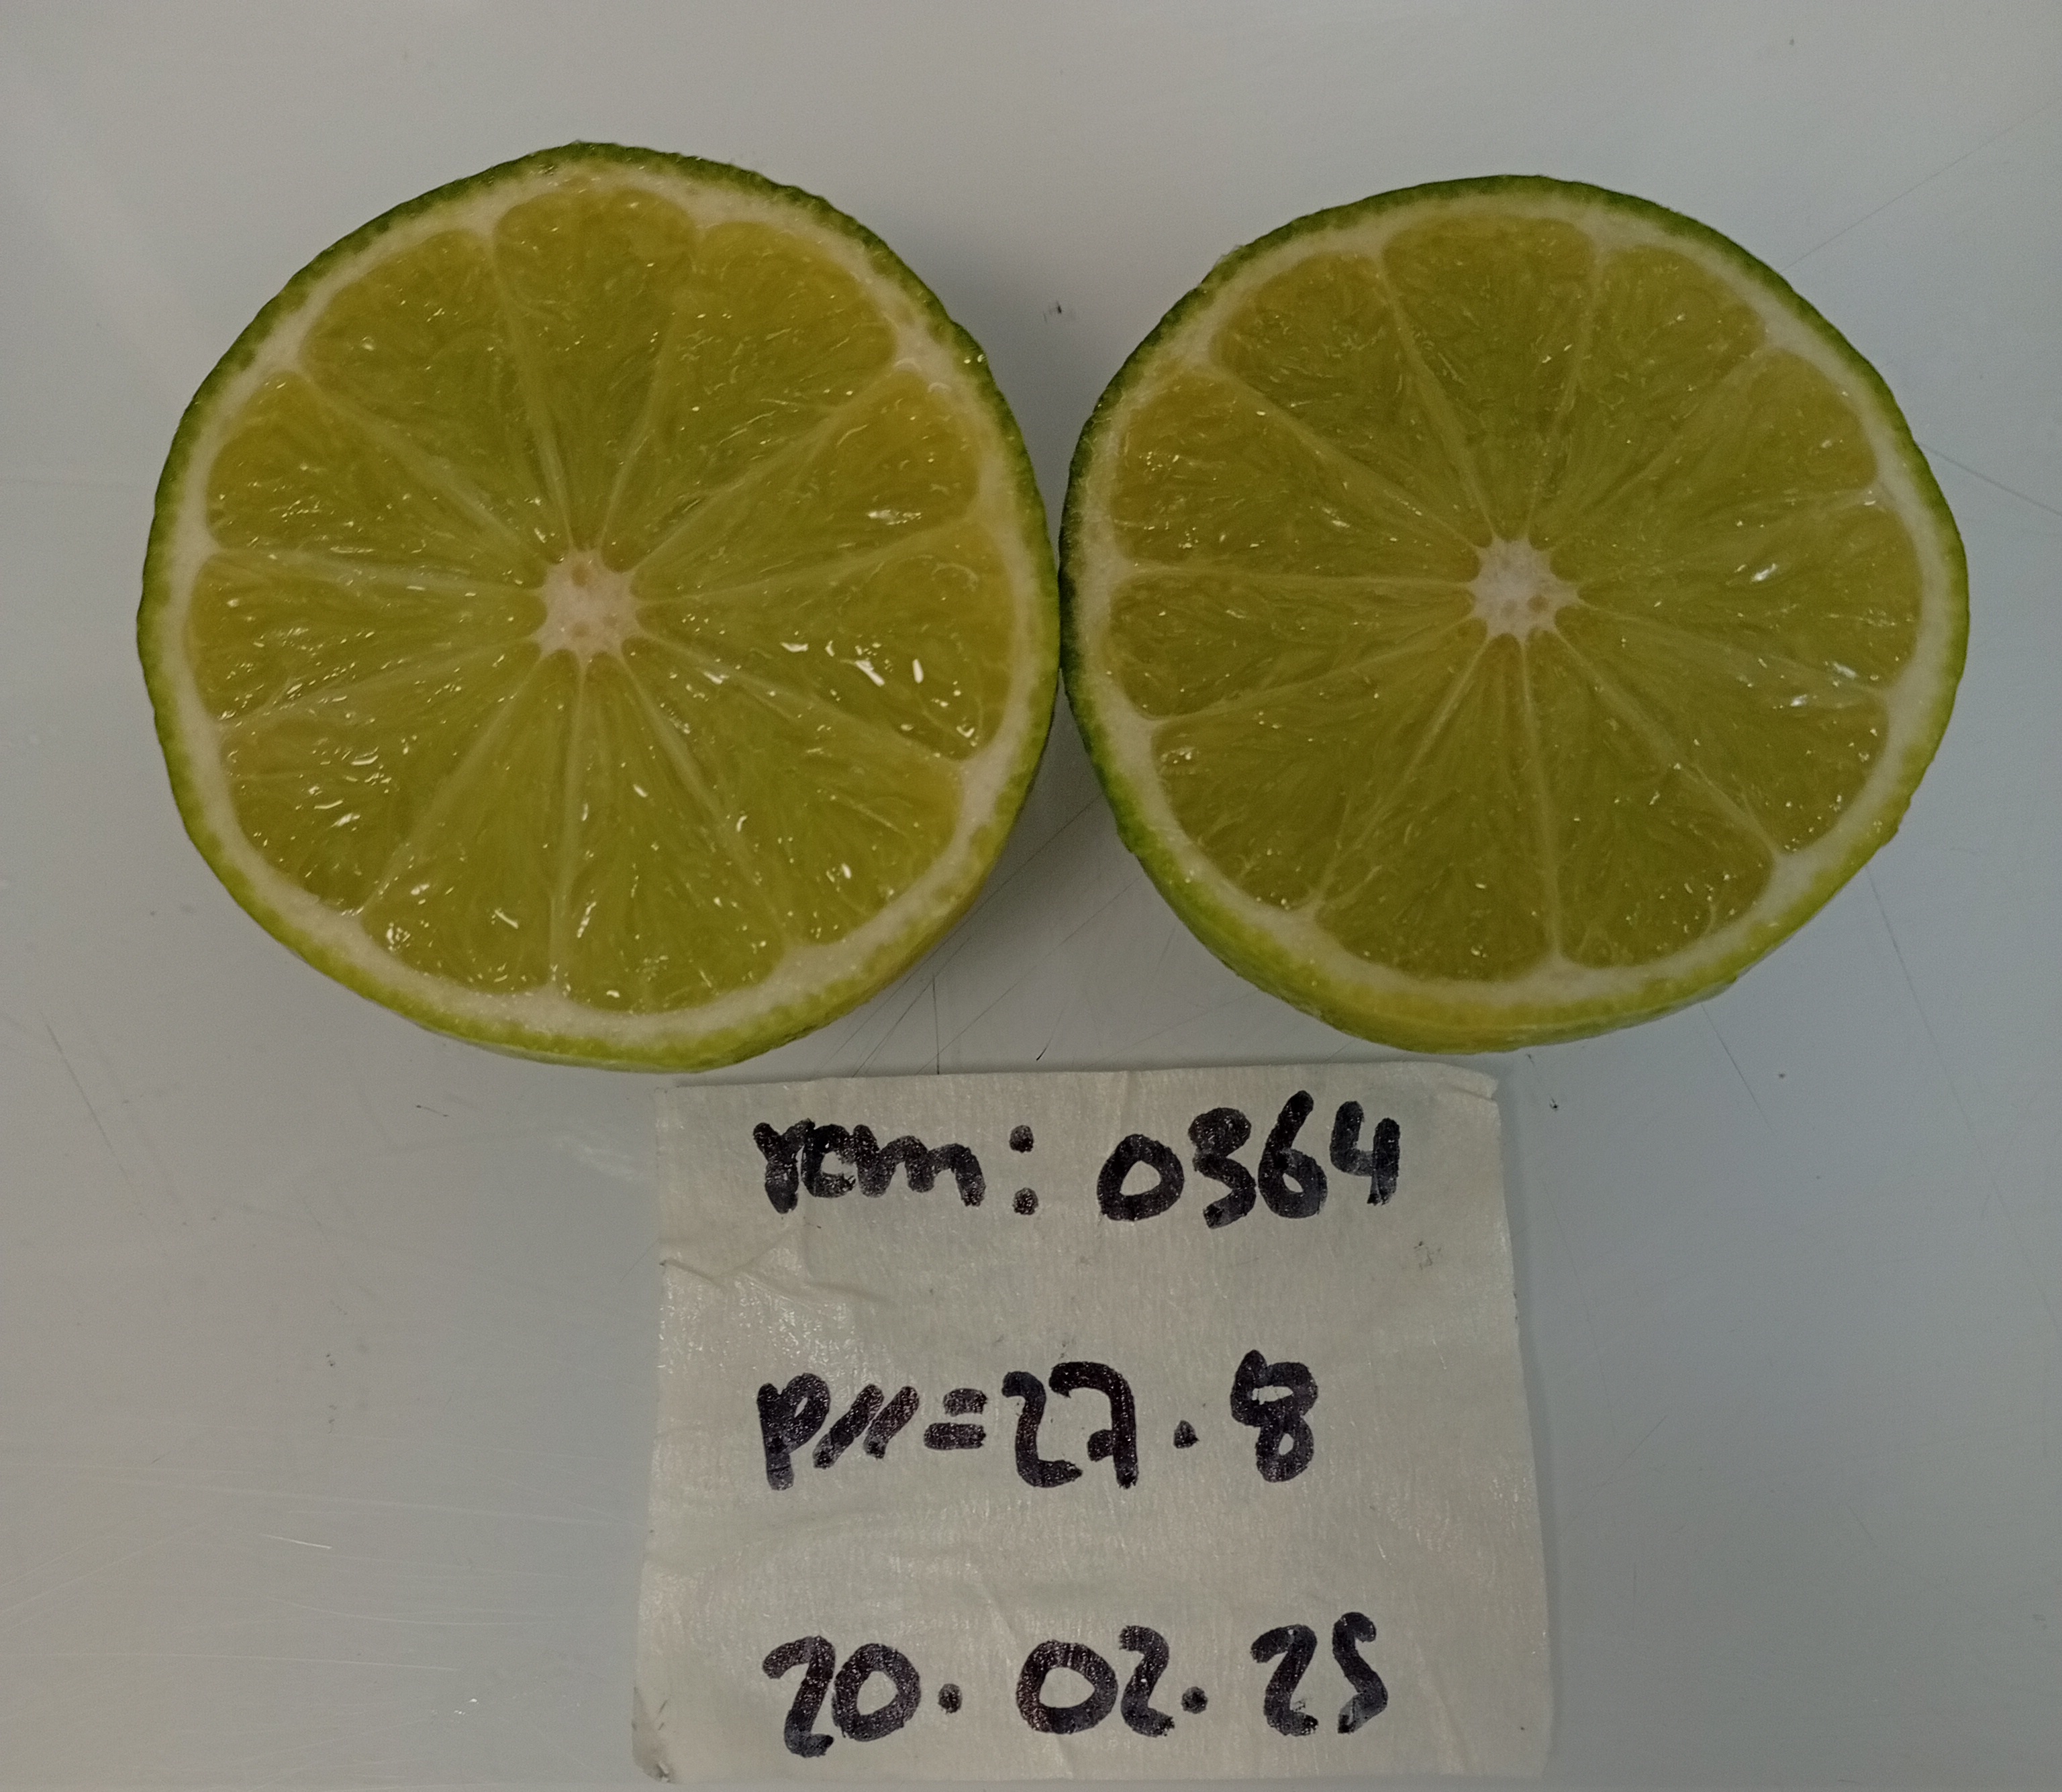 rcm: 0364
p//=27.8
20.02.25